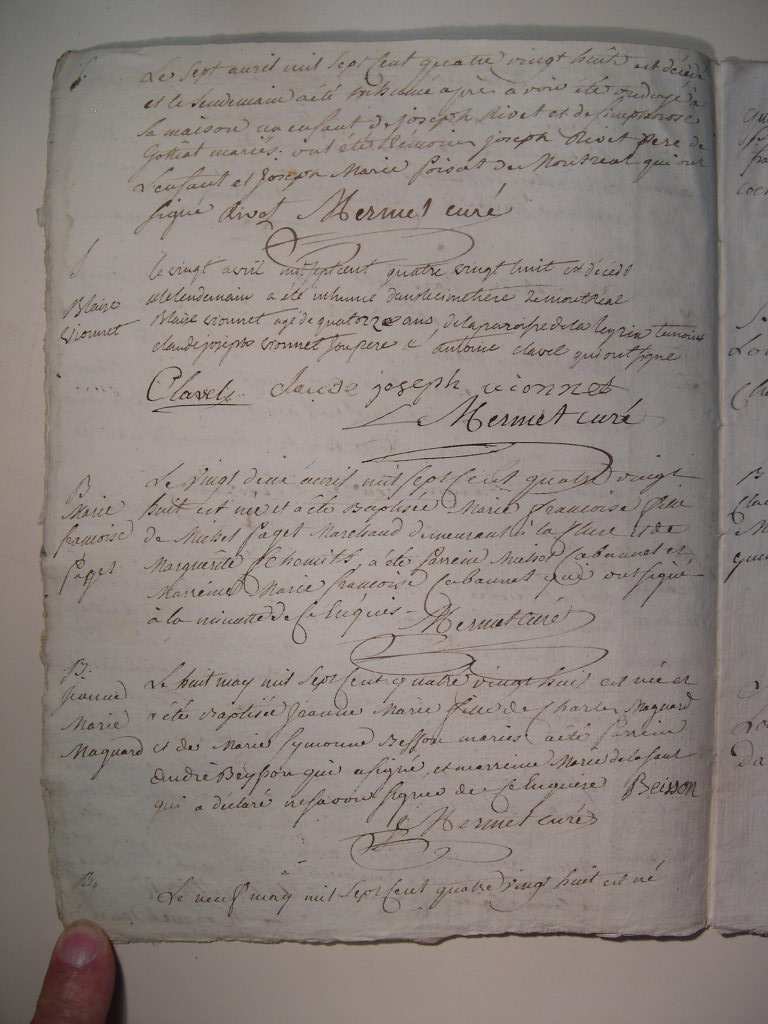 Le sept avril mil sept cent quatre vingt huit est décédé
et le lendemain a été inhumé après avoir été ondoyé à
la maison un enfant de joseph Rivet et de
mariés. ont été témoins joseph Rivet pere de
L'enfant et Joseph Marie de Montreal qui ont
signé Rivet Mermet curé
le vingt avril mil sept cent quatre vingt huit est décédé
et le lendemain a été inhumé dans le cimetière de montréal
Blaise vionnet
Blaise vionnet agé de quatorze ans, de la paroisse de la leyria temoins
claude joseph vionnet son pere & antoine clavel qui ont signé
Clavel claude joseph vionnet
Mermet curé
B
Marie
francoise
Paget
Le vingt deux avril mil sept cent quatre vingt
huit est née et a été Baptisée Marie francoise fille
de Michel Paget Marchand demeurant à la et de
Marguerite a été parrein Michel Cabannet et
Marreine Marie francoise Cabannet qui ont signé
à la minutte de ce Enquis - Mermet curé
B.
jeanne
Marie
Maguard
Le huit may mil sept cent quatre vingt huit est née et
a été Baptisée Jeanne Marie fille de Charles Maguard
et de Marie Symonne Besson mariés a été parrein
andré Beysson qui a signé, et marreine Marie
qui a déclaré ne savoir signer de ce Enquise Beisson
Mermet curé
B.
Le neuf may mil sept cent quatre vingt huit est né